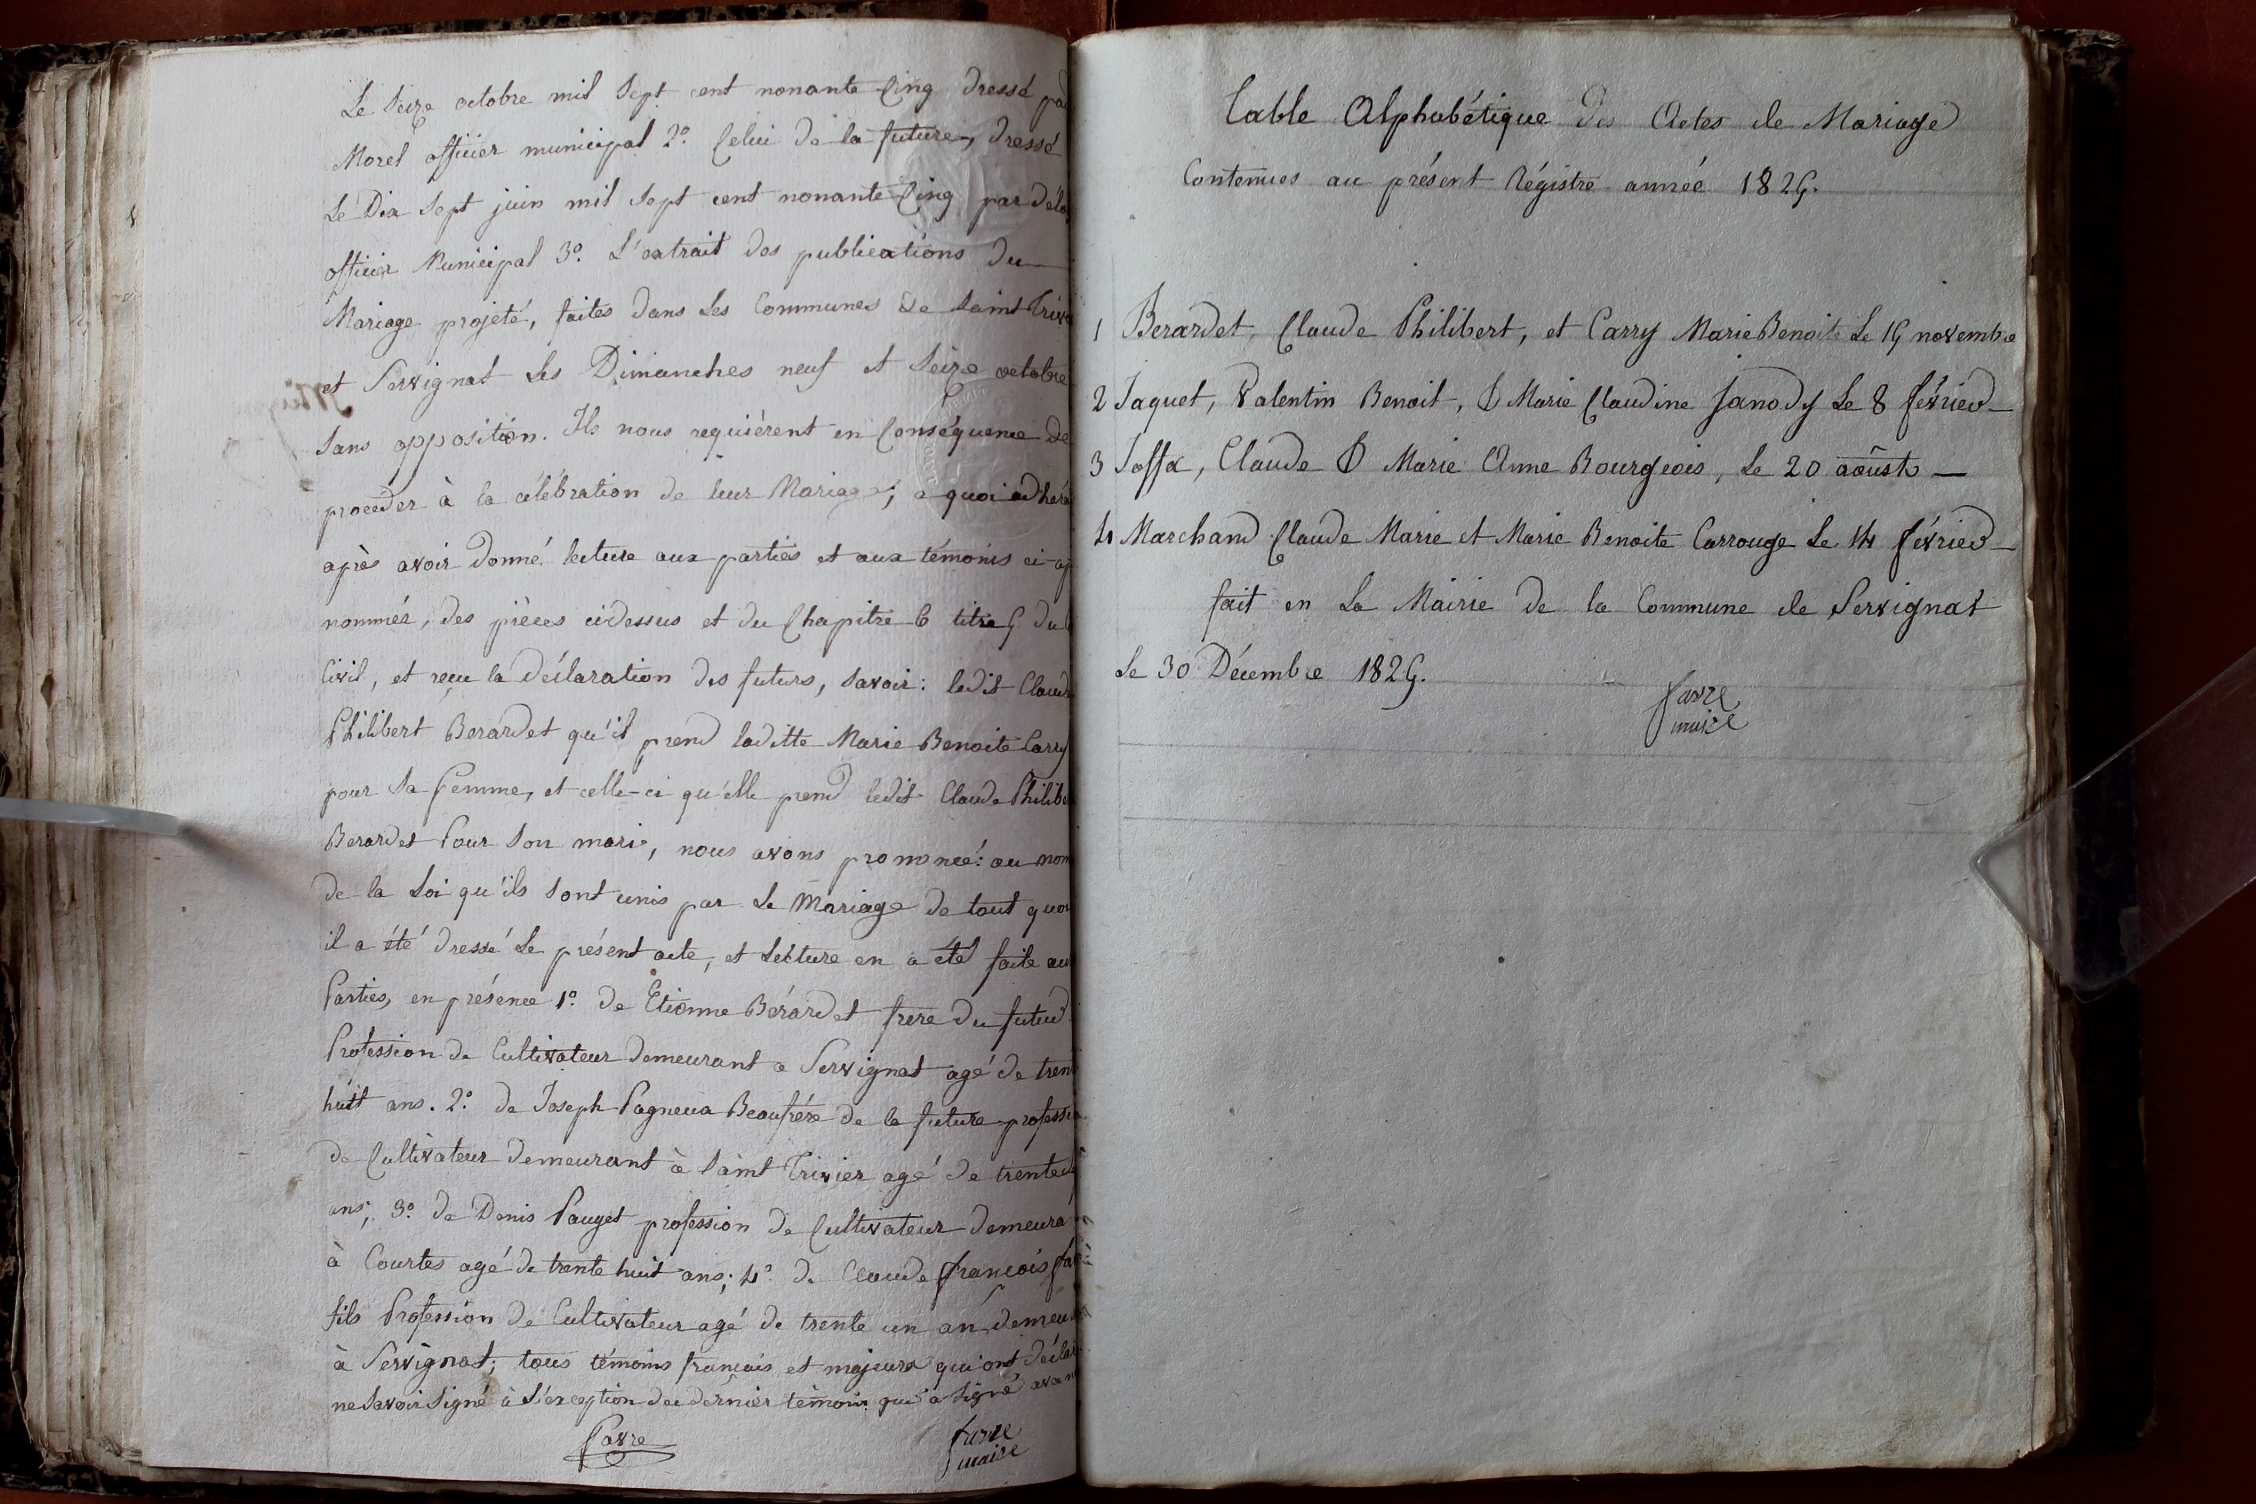 Le Seize octobre mil Sept cent nonante Cinq dressé par
Morel officier municipal 2.° Celui de la future, dressé
Le Dix Sept juin mil Sept cent nonante Cinq par
officier Municipal 3.° L'extrait des publications du
Mariage projeté, faites dans Les Communes de Saint Triv
et Servignat Les Dimanches neuf et Seize octobre
Sans opposition. Ils nous requièrent en Conséquence de
proceder à la célébration de leur Mariage, a quoi adhera
après avoir donné lecture aux parties et aux témoins ci-ap
nommés, des pièces cidessus et du Chapitre 6 titre 5 du
Civil, et reçu la Déclaration des futurs, savoir: ledit Claude
Philibert Berardet qu'il prend laditte Marie Benoite Carry
pour Sa femme, et celle-ci qu'elle prend ledit Claude Philibe
Berardet Pour Son mari, nous avons prononcé: au nom
de la Loi qu'ils Sont unis par Le Mariage de tout quoi
il a été dressé Le présent acte, et Lécture en a été faite aux
Parties, en présence 1.° de Etienne Bérardet frere du futur
Profession de Cultivateur demeurant a Servignat agé de trente
huit ans. 2.° de Joseph Pagneux Beaufrére de la future profession
de Cultivateur demeurant à Saint Trivier agé de trente
ans; 3.° de Denis Pauget profession de Cultivateur demeura
à Courtes agé de trente huit ans; 4.° de Claude François fa
fils Profession de Cultivateur agé de trente un an, demeu
à Servignat; tous témoins français et majeurs qui ont déclar
ne Savoir Signé à L'exception du dernier témoin qui a Signé avan
Favre
favre
maire
Table Alphabétique des Actes de Mariage
Contenues au présent Régistre année 1825.
1 Berardet, Claude Philibert, et Carry Marie Benoite Le 15 novembre
2 Jaquet, Valentin Benoit, & Marie Claudine Janody Le 8 février
3 Joffx, Claude & Marie Anne Bourgeois, Le 20 aoûst
4 Marchand Claude Marie et Marie Benoite Carrouge Le 14 février
fait en La Mairie de la Commune de Servignat
Le 30 Décembre 1825.
favre
maire